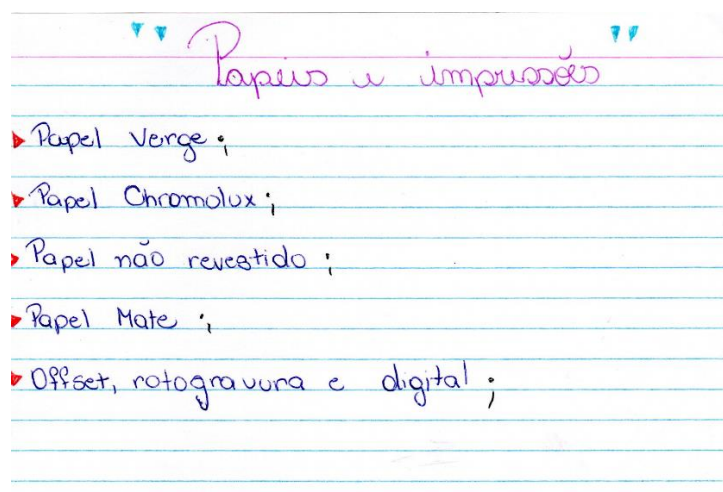 "Papeis e impressões"
Papel Verge;
Papel Chromolux;
Papel não revestido;
Papel Mate;
Offset, rotogravura e digital;